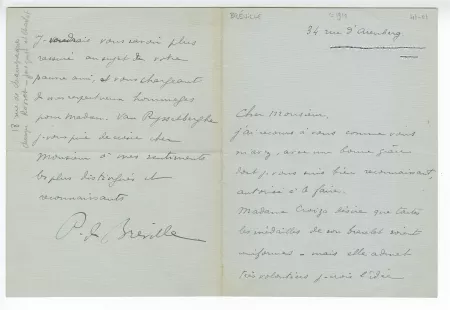 BRÉVILLE
34 rue d'Arenberg
Cher Monsieur,
j'ai recours à vous comme vous
avec une bonne grâce
dont je vous suis bien reconnaissant
autorisé à le faire.
Madame Croiza désire que toutes
les médailles de son bracelet soient
uniformes - mais elle admet
très volontiers
Je voudrais vous savoir plus
rassuré au sujet de votre
pauvre ami, et vous chargeant
de mes respectueux hommages
pour Madame Van Rysselberghe
je vous prie de croire cher
Monsieur à mes sentiments
les plus distingués et
reconnaissants
P. de Bréville